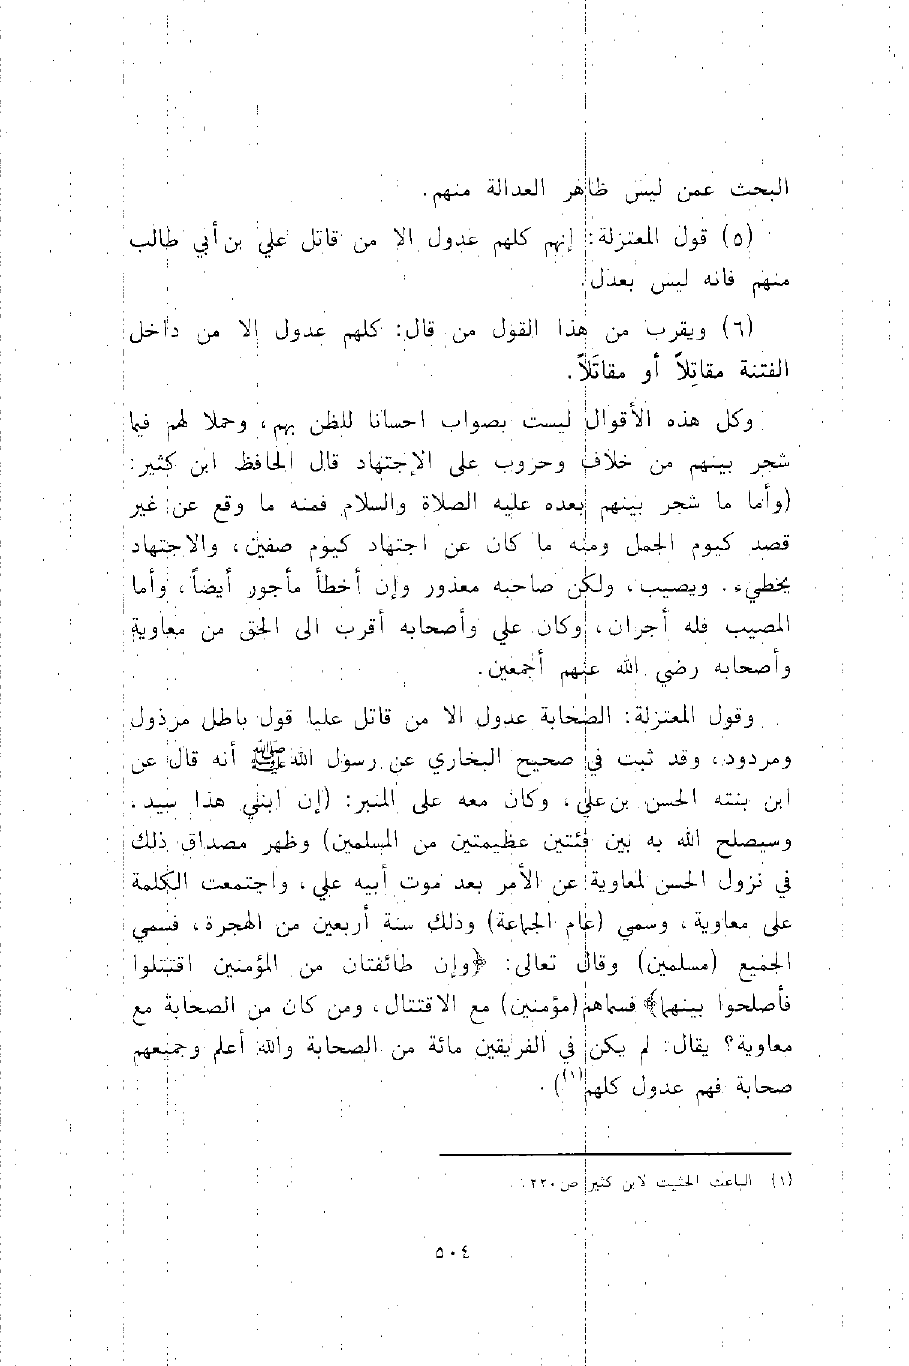 البحث عمن ليس ظاهر العدالة منهم.
(٥) قول المعتزلة: إنهم كلهم عدول الا من قاتل علي بن أبي طالب
منهم فانه ليس بعدل.
(٦) ويقرب من هذا القول من قال: كلهم عدول إلا من داخل
الفتنة مقاتِلاً أو مقاتَلاً.
وكل هذه الأقوال ليست بصواب احسانا للظن بهم، وحملا لهم فيما
شجر بينهم من خلاف وحروب على الإجتهاد قال الحافظ ابن كثير:
(وأما ما شجر بينهم بعده عليه الصلاة والسلام فمنه ما وقع عن غير
قصد كيوم الجمل ومنه ما كان عن اجتهاد كيوم صفين، والاجتهاد
يخطيء. ويصيب، ولكن صاحبه معذور وإن أخطأ مأجور أيضاً، وأما
المصيب فله أجران، وكان علي وأصحابه أقرب الى الحق من معاوية
وأصحابه رضي الله عنهم أجمعين.
وقول المعتزلة: الصحابة عدول الا من قاتل عليا قول باطل مرذول
ومردود، وقد ثبت في صحيح البخاري عن رسول الله ﷺ أنه قال عن
ابن بنته الحسن بن علي، وكان معه على المنبر: (إن ابني هذا سيد.
وسيصلح الله به بين فئتين عظيمتين من المسلمين) وظهر مصداق ذلك
في نزول الحسن لمعاوية عن الأمر بعد موت أبيه علي، واجتمعت الكلمة
على معاوية، وسمي (عام الجماعة) وذلك سنة أربعين من الهجرة، فسمي
الجميع (مسلمين) وقال تعالى: ﴿وإن طائفتان من المؤمنين اقتتلوا
فأصلحوا بينهما﴾ فسماهم (مؤمنين) مع الاقتتال، ومن كان من الصحابة مع
معاوية؟ يقال: لم يكن في الفريقين مائة من الصحابة والله أعلم وجميعهم
صحابة فهم عدول كلهم(١)).
(١) الباعث الحثيث لابن كثير ص٢٢٠.
٥٠٤